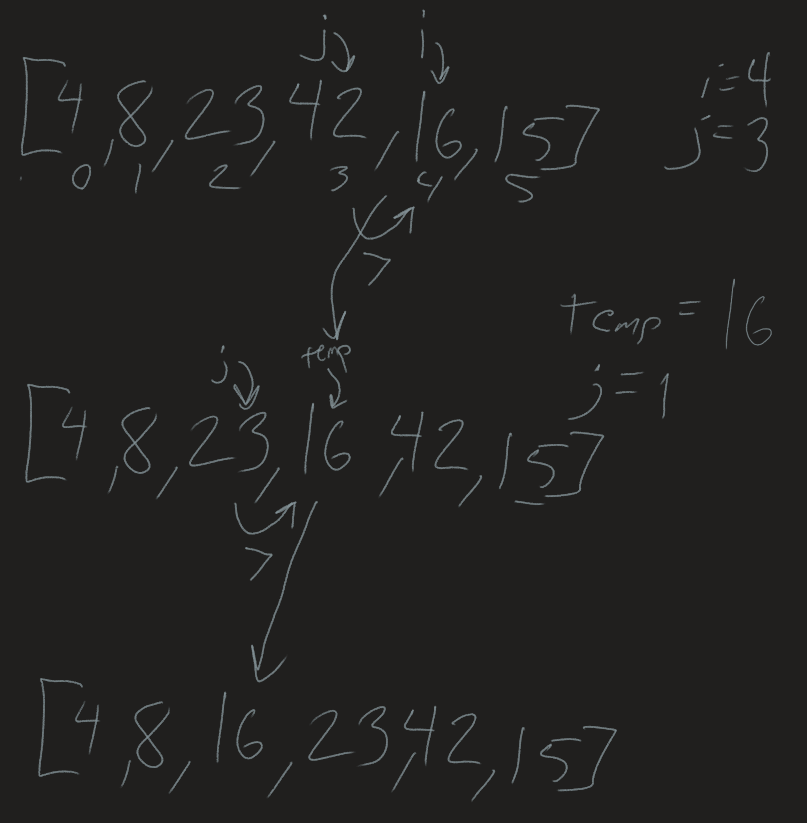 j i
i=4
[4,8,23,42,16,15]
j=3
0 1 2 3 4 5
>
temp = 16
temp
j
j=1
[4,8,23,16,42,15]
>
[4,8,16,23,42,15]